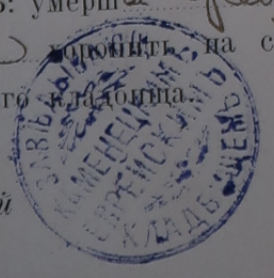 умерш
хоронить на с
го кладбища.
й
ЗАВѢДЫВАЮЩІЙ
КАМЕНЕЦКИМЪ
ЕВРЕЙСКИМЪ
КЛАДБИЩЕМЪ